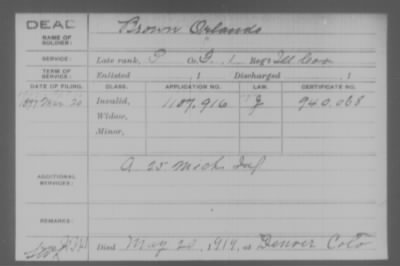 DEAD
NAME OF SOLDIER: Brown Orlando
SERVICE: Late rank, P Co. G, 1 Reg't Ill Cav
TERM OF SERVICE: Enlisted , 1 Discharged , 1
DATE OF FILING. CLASS. APPLICATION NO. LAW. CERTIFICATE NO.
1897 Mar. 20 Invalid, 1187,916 G 940,038
Widow,
Minor,
ADDITIONAL SERVICES: A 25 Mich Inf
REMARKS:
Died May 20, 1919, at Denver Colo